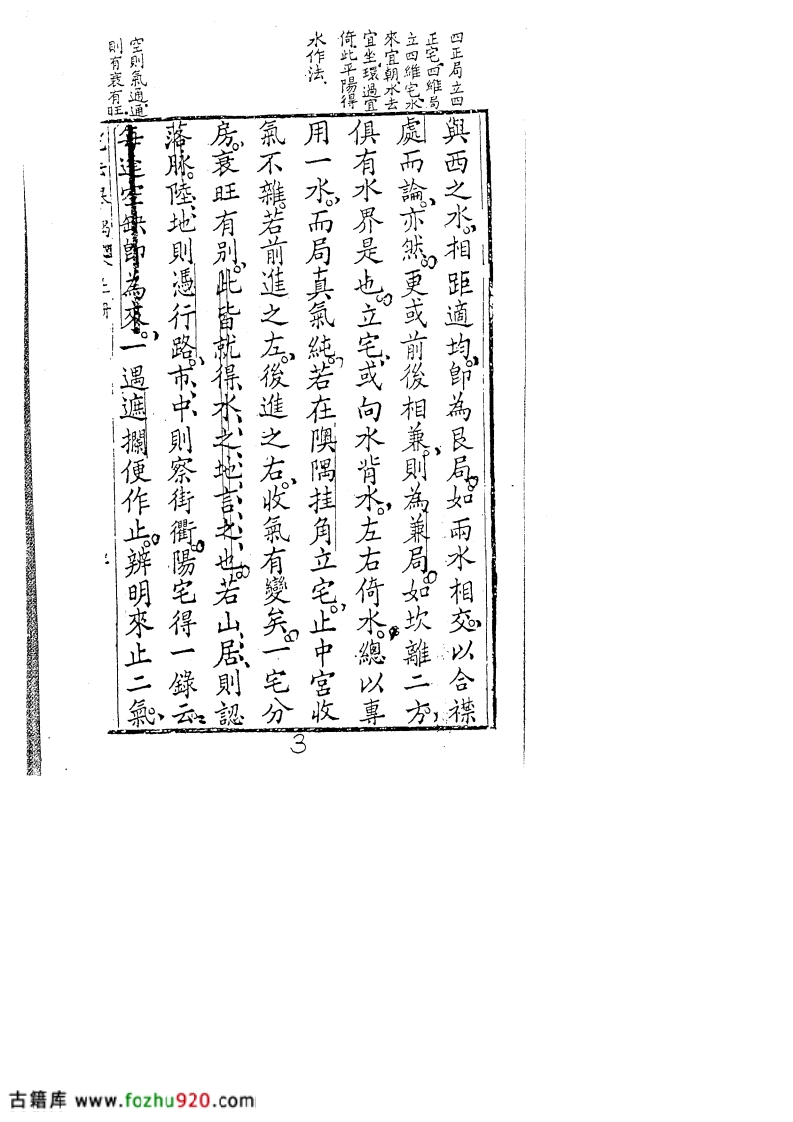 四正局立四
正宅四維局
立四維宅水
來宜朝水去
宜坐環過宜
倚此平陽得
水作法
空則氣通通
則有衰有旺
與西之水。相距適均。即為艮局。如兩水相交。以合襟
處而論。亦然。更或前後相兼。則為兼局。如坎離二方。
俱有水界是也。立宅、或向水背水。左右倚水。總以專
用一水。而局真氣純。若在隩隅挂角立宅。止中宮收
氣不雜。若前進之左。後進之右。收氣有變矣。一宅分
房。衰旺有別。此皆就得水之地言之也。若山居、則認
落脉。陸地則憑行路。市中則察街衢。陽宅得一錄云
每逢空缺即為來。一遇遮攔便作止。辨明來止二氣。
3
古籍库 www.fozhu920.com